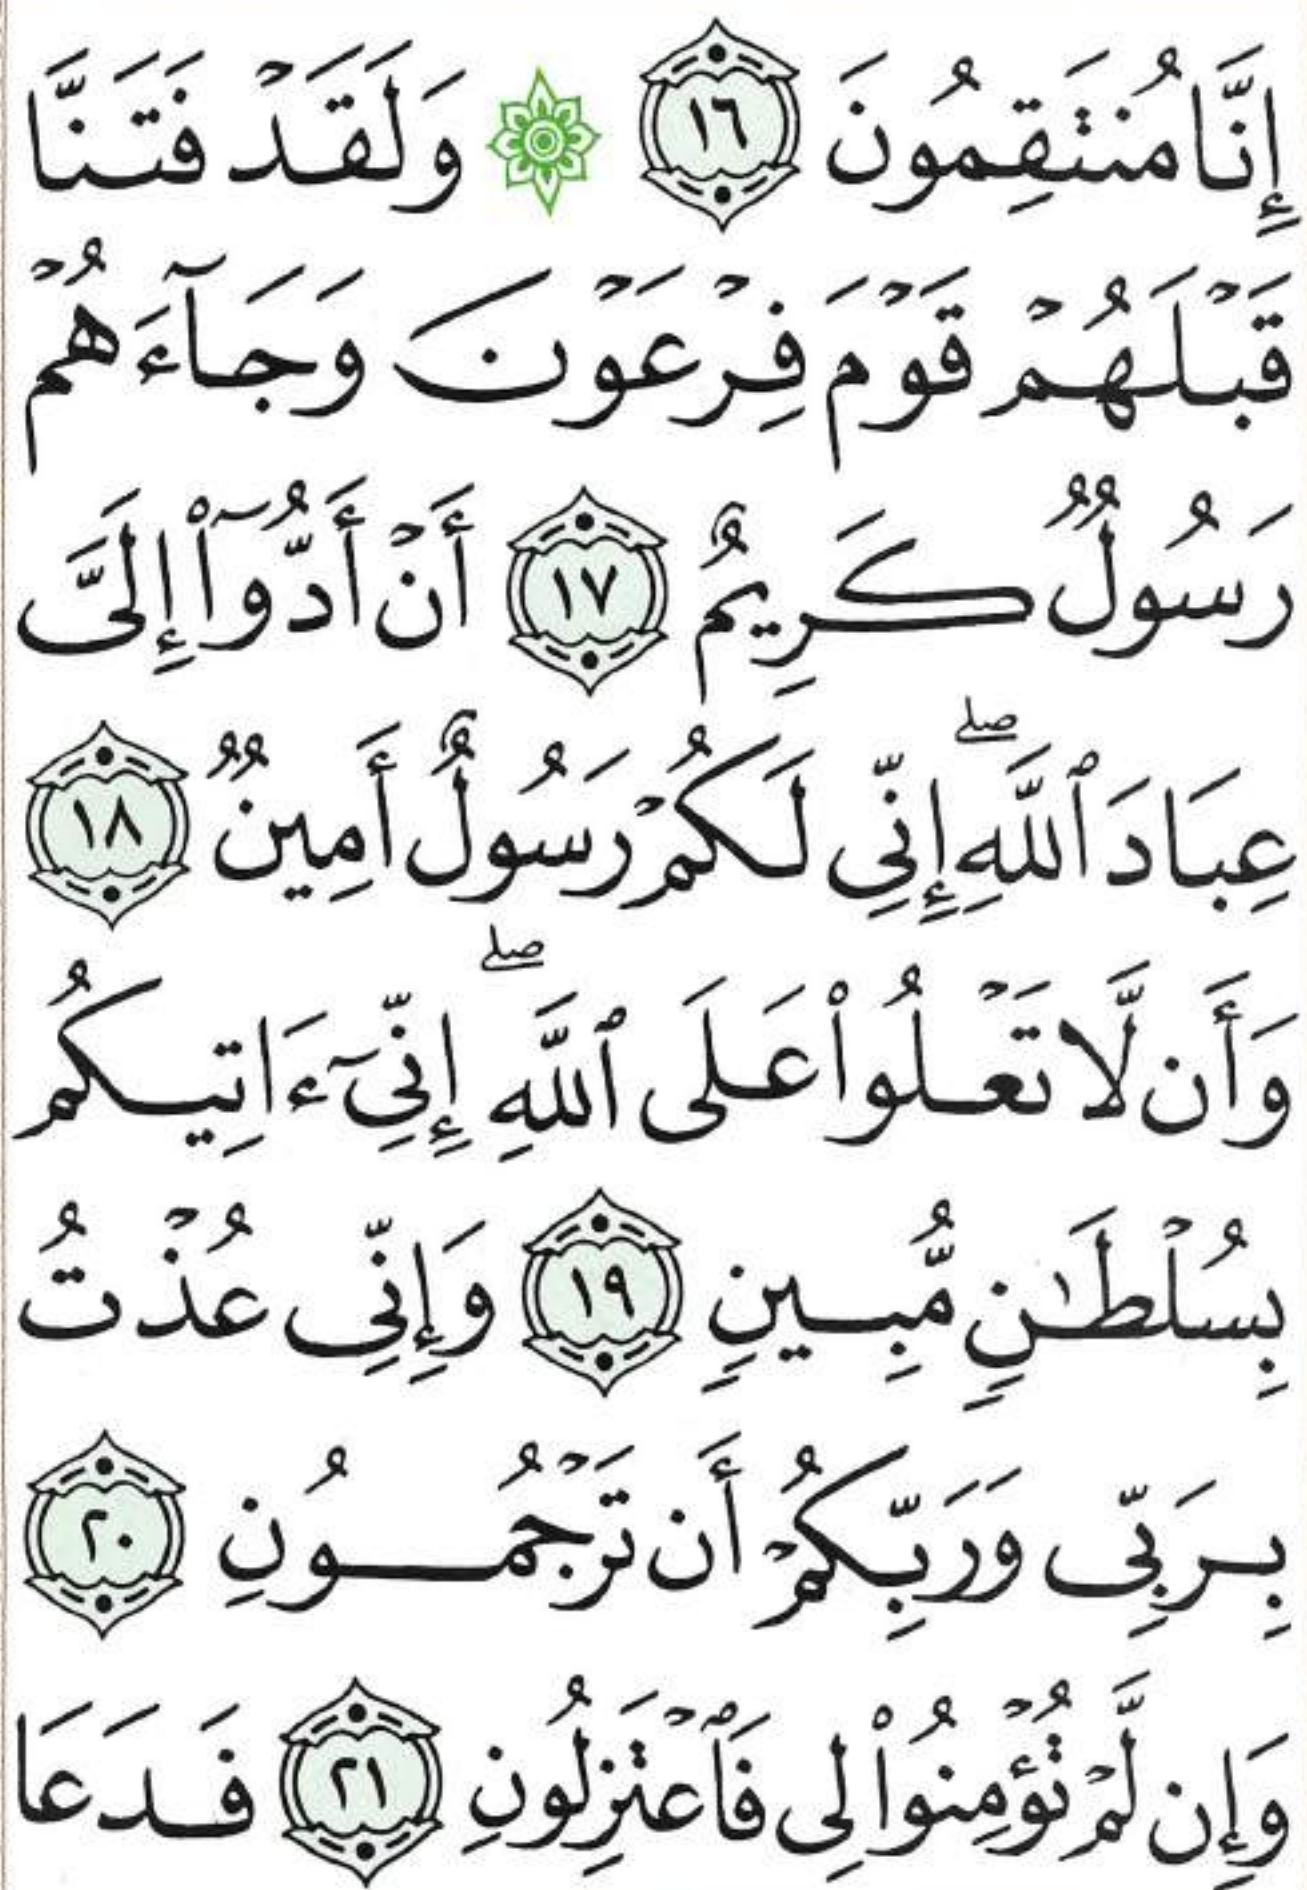 إِنَّا مُنتَقِمُونَ ١٦ ۞ وَلَقَدۡ فَتَنَّا
قَبۡلَهُمۡ قَوۡمَ فِرۡعَوۡنَ وَجَآءَهُمۡ
رَسُولٞ كَرِيمٌ ١٧ أَنۡ أَدُّوٓاْ إِلَيَّ
عِبَادَ ٱللَّهِۖ إِنِّي لَكُمۡ رَسُولٌ أَمِينٞ ١٨
وَأَن لَّا تَعۡلُواْ عَلَى ٱللَّهِۖ إِنِّيٓ ءَاتِيكُم
بِسُلۡطَٰنٖ مُّبِينٖ ١٩ وَإِنِّي عُذۡتُ
بِرَبِّي وَرَبِّكُمۡ أَن تَرۡجُمُونِ ٢٠
وَإِن لَّمۡ تُؤۡمِنُواْ لِي فَٱعۡتَزِلُونِ ٢١ فَدَعَا